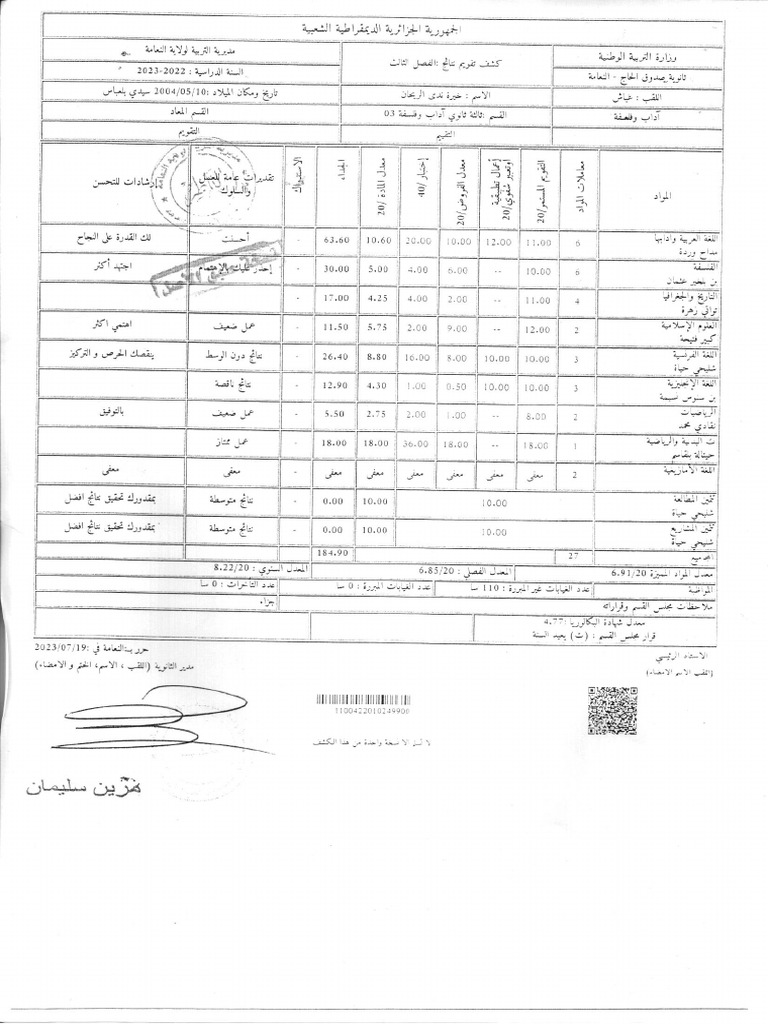 الجمهورية الجزائرية الديمقراطية الشعبية
وزارة التربية الوطنية
كشف تقويم نتائج :الفصل الثالث
مديرية التربية لولاية النعامة
ثانوية صدوق الحاج - النعامة
السنة الدراسية : 2022-2023
اللقب : عباش
الاسم : خيرة ندى الريحان
تاريخ ومكان الميلاد :2004/05/10 سيدي بلعباس
آداب وفلسفة
القسم :ثالثة ثانوي آداب وفلسفة 03
القسم المعاد
التقييم
التقويم
المواد
معاملات المواد
التقويم المستمر/20
أعمال تطبيقية اوتعبير شفوي/20
معدل الفروض/20
إختبار/40
معدل المادة /20
الجداء
الاستدراك
تقديرات عامة للعمل والسلوك
إرشادات للتحسن
اللغة العربية وآدابها 6 11.00 12.00 10.00 20.00 10.60 63.60 - أحسنت لك القدرة على النجاح
مداح وردة
الفلسفة 6 10.00 -- 6.00 4.00 5.00 30.00 - اجتهد أكثر
بن بلخير عثمان
التاريخ والجغرافيا 4 11.00 -- 2.00 4.00 4.25 17.00 -
تواتي زهرة
العلوم الإسلامية 2 12.00 -- 9.00 2.00 5.75 11.50 - عمل ضعيف اهتمي اكثر
كبير فتيحة
اللغة الفرنسية 3 10.00 10.00 8.00 16.00 8.80 26.40 - نتائج دون الوسط ينقصك الحرص و التركيز
شليحي حياة
اللغة الإنجليزية 3 10.00 10.00 0.50 1.00 4.30 12.90 - نتائج ناقصة
بن سنوس نسيمة
الرياضيات 2 8.00 -- 1.00 2.00 2.75 5.50 - عمل ضعيف بالتوفيق
نقادي محمد
ت البدنية والرياضية 1 18.00 -- 18.00 36.00 18.00 18.00 - عمل ممتاز
بلقاسم
اللغة الأمازيغية 2 معفى معفى معفى معفى معفى معفى - معفى معفى
تثمين المطالعة 10.00 10.00 0.00 - نتائج متوسطة بمقدورك تحقيق نتائج افضل
شليحي حياة
تثمين المشاريع 10.00 10.00 0.00 - نتائج متوسطة بمقدورك تحقيق نتائج افضل
شليحي حياة
المجموع 27 184.90
معدل المواد المميزة 6.91/20 المعدل الفصلي : 6.85/20 المعدل السنوي : 8.22/20
المواظبة عدد الغيابات غير المبررة : 110 سا عدد الغيابات المبررة : 0 سا عدد التأخرات : 0 سا
ملاحظات مجلس القسم وقراراته جزاء
معدل شهادة البكالوريا :4.77
قرار مجلس القسم : (ت) يعيد السنة
الاستاذ الرئيسي
حرر بـ:النعامة في :2023/07/19
(اللقب الاسم الامضاء)
مدير الثانوية (اللقب ، الاسم، الختم و الامضاء)
1100422010249906
لا تسلم الا نسخة واحدة من هذا الكشف
سليمان